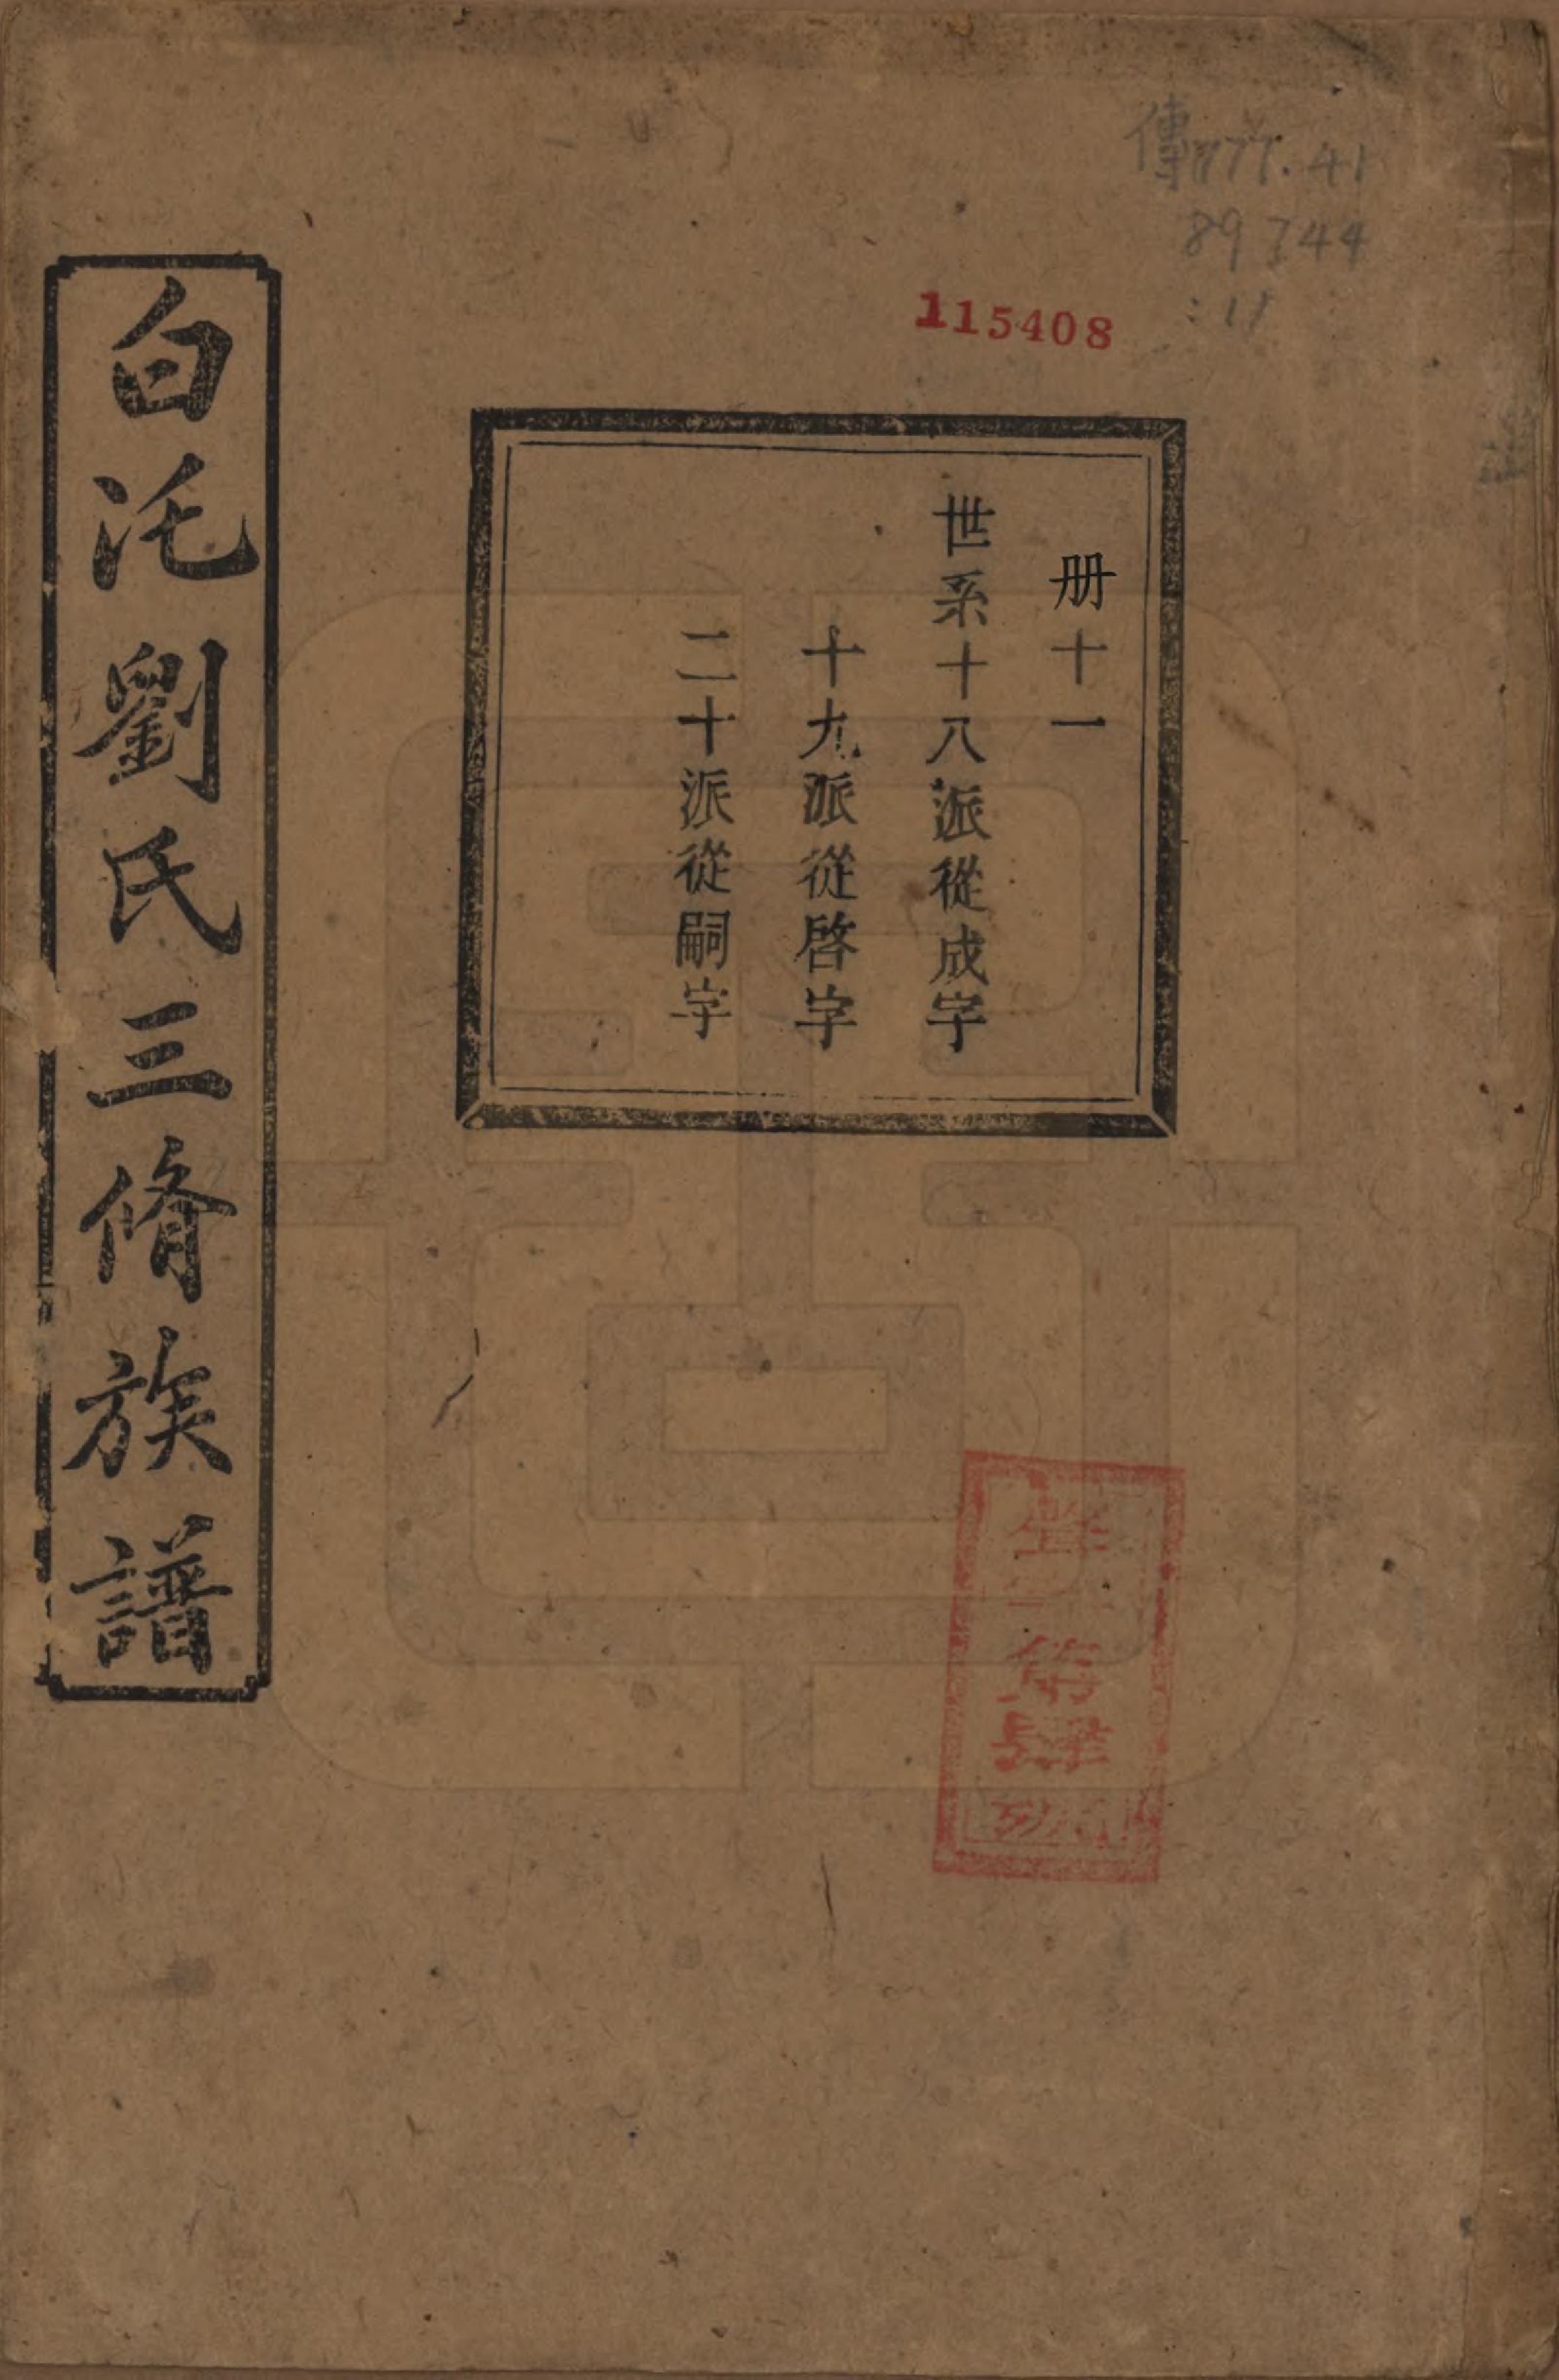 傳777.41
89744
:11
115408
册十一
世系十八派從成字
十九派從啓字
二十派從嗣字
白沱劉氏三脩族譜